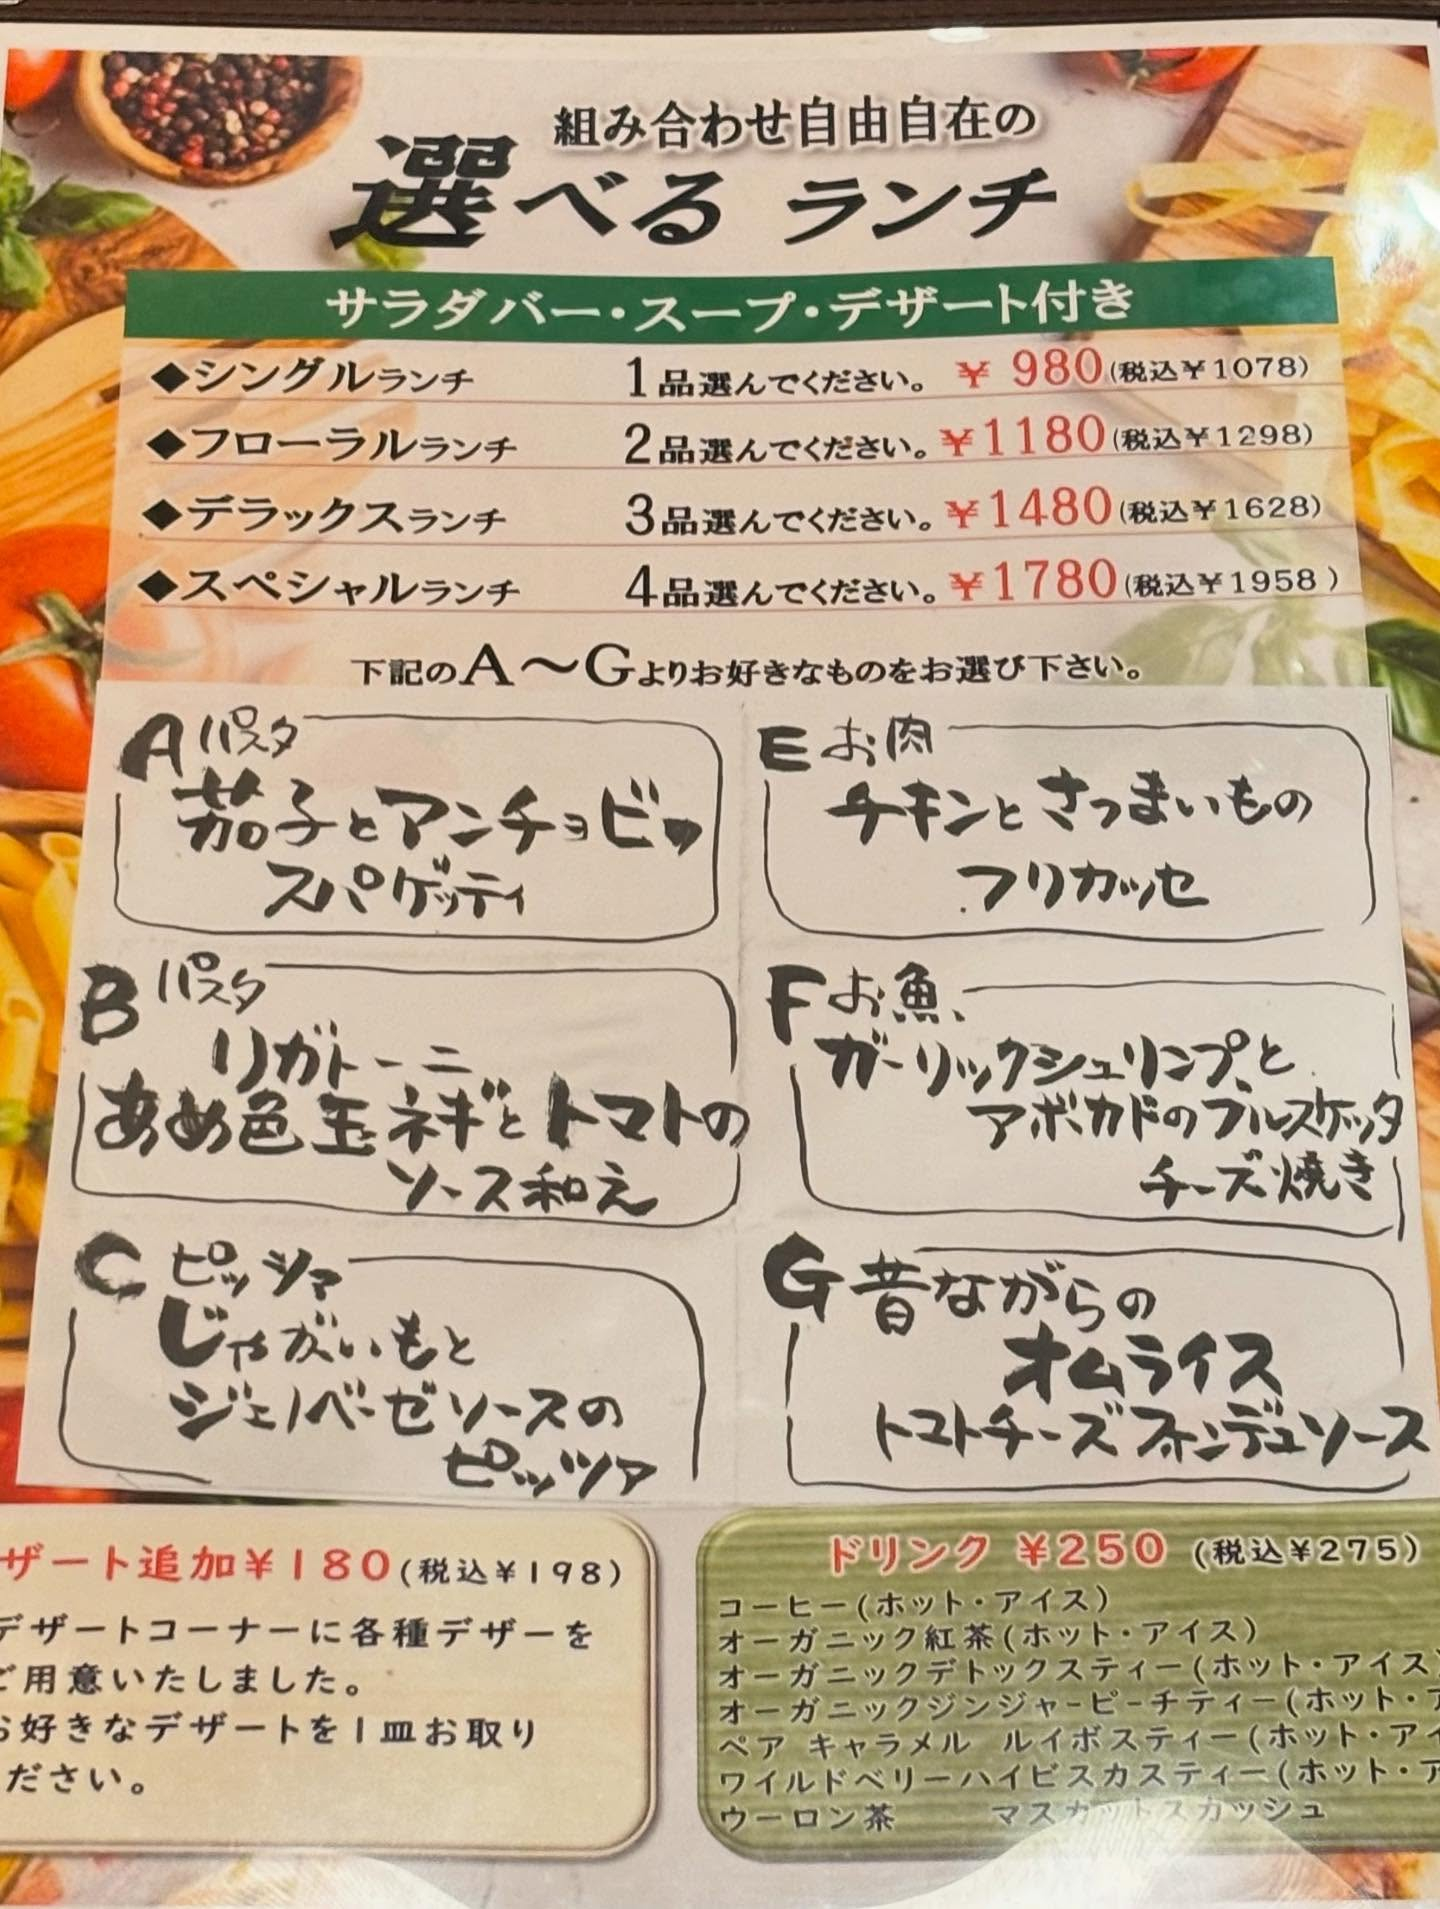 組み合わせ自由自在の
選べる ランチ
サラダバー・スープ・デザート付き
◆シングルランチ 1品選んでください。 ¥ 980(税込¥1078)
◆フローラルランチ 2品選んでください。 ¥1180(税込¥1298)
◆デラックスランチ 3品選んでください。 ¥1480(税込¥1628)
◆スペシャルランチ 4品選んでください。 ¥1780(税込¥1958 )
下記のA～Gよりお好きなものをお選び下さい。
A パスタ
茄子とアンチョビの
スパゲッティ
B パスタ
リガトーニ
あめ色玉ネギとトマトの
ソース和え
C ピッツァ
じゃがいもと
ジェノベーゼソースの
ピッツァ
E お肉
チキンとさつまいもの
フリカッセ
F お魚
ガーリックシュリンプと
アボカドのブルスケッタ
チーズ焼き
G 昔ながらの
オムライス
トマトチーズフォンデュソース
ザート追加¥180(税込¥198)
デザートコーナーに各種デザーを
ご用意いたしました。
お好きなデザートを1皿お取り
ください。
ドリンク ¥250 (税込¥275)
コーヒー(ホット・アイス)
オーガニック紅茶(ホット・アイス)
オーガニックデトックスティー(ホット・アイス)
オーガニックジンジャーピーチティー(ホット・ア
ペア キャラメル ルイボスティー(ホット・アイ
ワイルドベリーハイビスカスティー(ホット・ア
ウーロン茶 マスカットスカッシュ